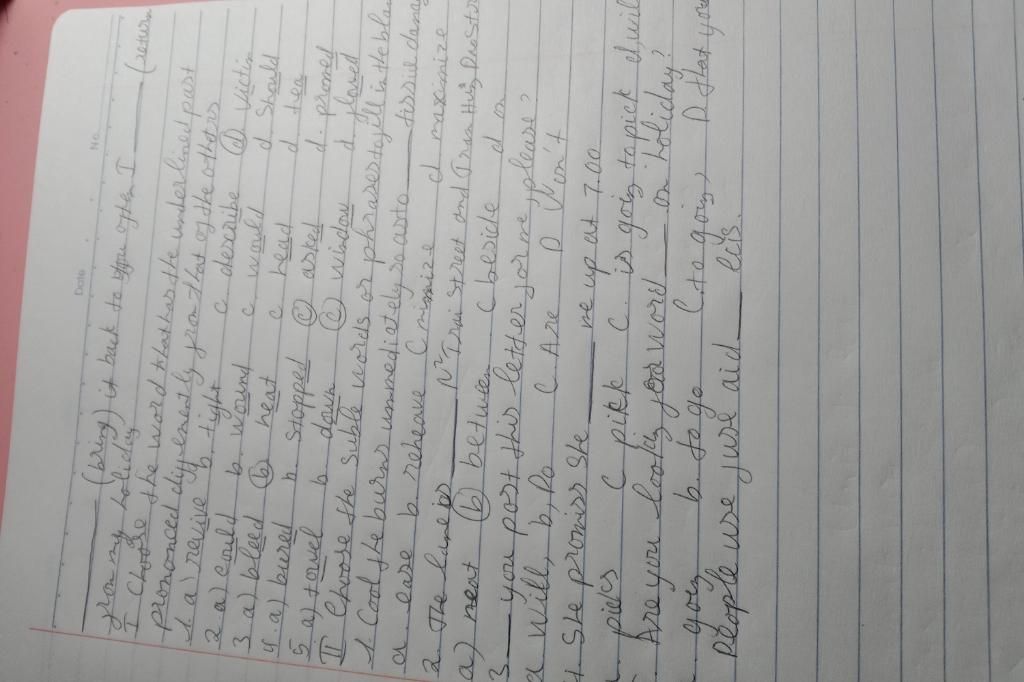 Date No.
(bring) it back to you after I (return
from my holiday
I Choose the word that has the underlined part
pronounced differently from that of the others
1. a) revive b. tight c. describe d) Victim
2 a) could b. wound c. would d. should
3 a) bleed b) heat c. head d. tea
4. a) buried b. stopped c) asked d. promed
5 a) towel b. down c) window d. flowed
II Choose the suble words or phrases to fill in the blan
1 Cool the burns immediately so as to tissue damag
a ease b. releave C minimize d maximize
2. The lune is N°2 Trai Street and Tran Hung Dao Str
a) next b) between C beside d on
3 you post this letter for me, please?
a Will b, Do C. Are D Won't
4. She promiss She me up at 7.00
picks C pick C. is goig to pick d, wil
Are you looking for word on holiday?
goig b. to go C to going, D that you
People use first aid eis.